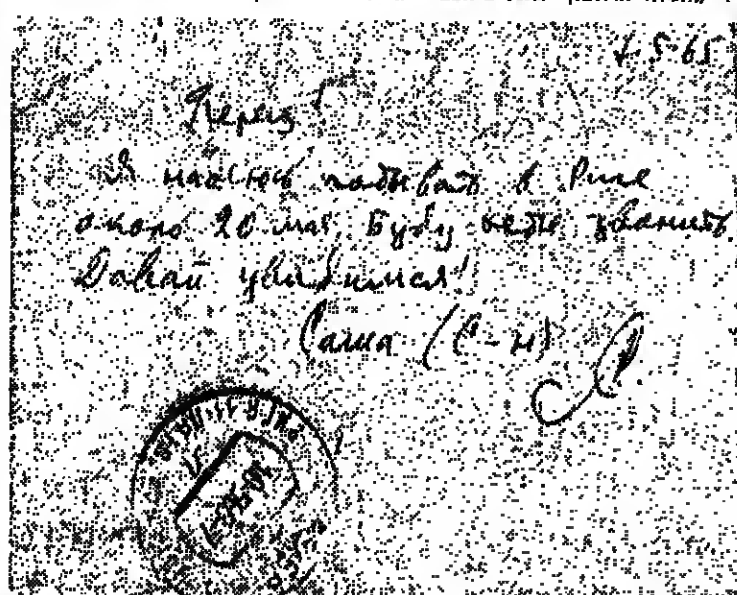 5-65
Перец!
Я надеюсь побывать в Риге
около 20 мая, Буду тебе звонить.
Давай увидимся!
Саша (С-н)